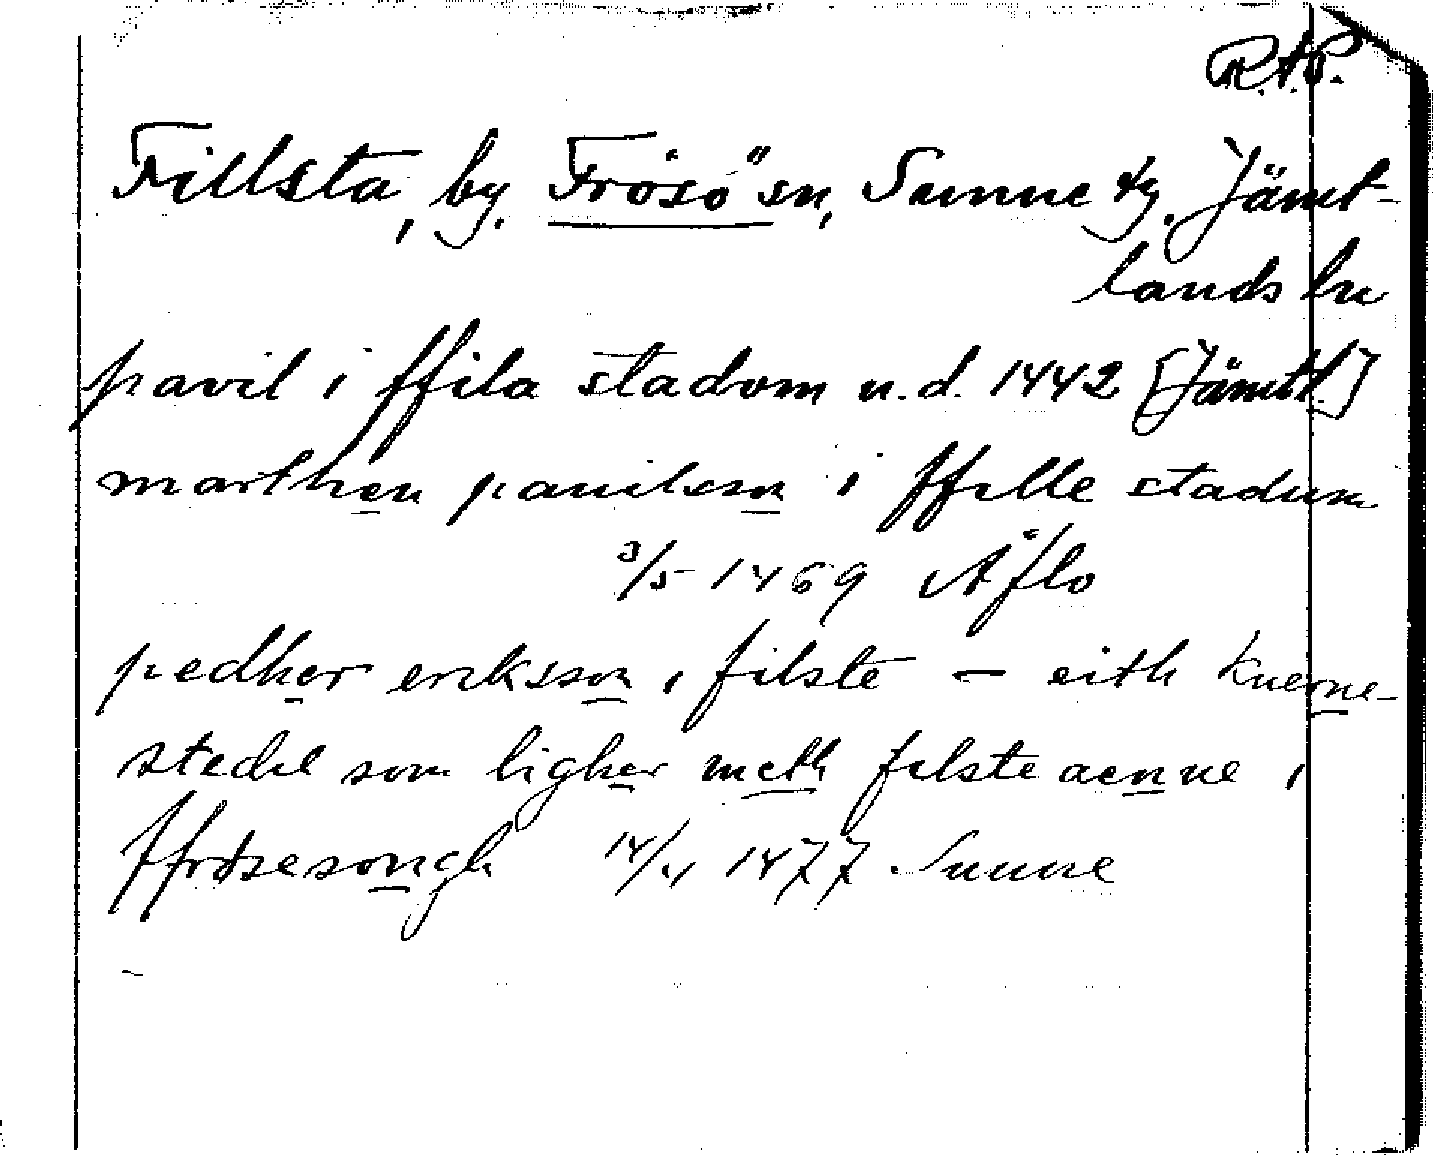 R.A.P.
Fillsta, by. Frösö sn, Sunne tg. Jämt-
lands ln
pavil i ffila stadom u.d. 1442 [Jämtl.]
marthen pauilsson i ffille stadum
3/5 1469 Åflo
pedher eriksson i filste — eith kuerne-
stedhe som ligher meth filste aenne i
ffrøsesongh 14/4 1477 Sunne